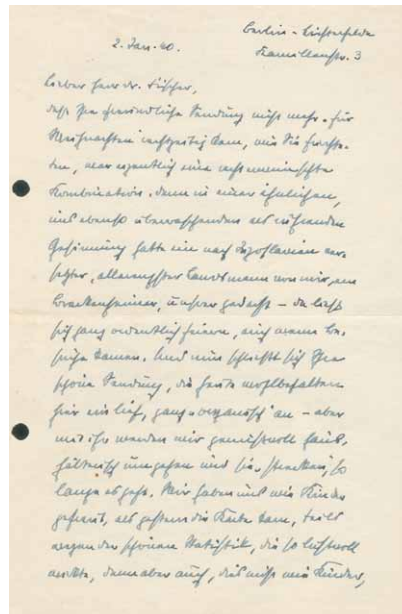 Berlin-Lichterfelde
Kamillenstr. 3
2. Jan. 40.
Lieber Herr Dr. Fischer,
dass Ihre freundliche Sendung nicht mehr für
Weihnachten rechtzeitig kam, wie Sie fürchte-
ten, war eigentlich eine recht erwünschte
Kombination. denn in einer ähnlichen,
uns ebenso überraschenden als rührenden
Gesinnung hatte ein nach Jugoslavien ver-
setzter, allerengster Landsmann von mir, ein
Brackenheimer, unser gedacht – da liess
sich ganz ordentlich feiern, auch wenn Be-
suche kamen. Und nun schliesst sich Ihre
schöne Sendung, die heute wohlbehalten
hier einlief, ganz "organisch" an – aber
mit ihr werden wir genussvoll haus-
hälterisch umgehen und sie "strecken", so
lange es geht. Wir haben uns wie Kinder
gefreut, als gestern die Karte kam, teils
wegen der schönen Statistik, die so lustvoll
wirkte, dann aber auch, dies nicht wie Kinder,